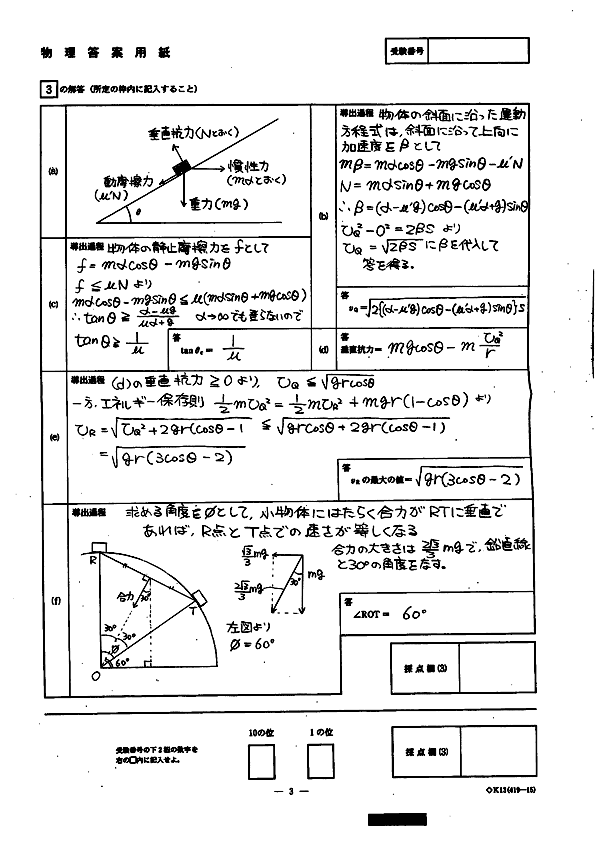 物理答案用紙
受験番号
3 の解答（所定の枠内に記入すること）
(a)
垂直抗力(Nとおく)
慣性力
(mαとおく)
動摩擦力
(μ'N)
重力(mg)
θ
(b)
導出過程 物体の斜面に沿った運動
方程式は、斜面に沿って上向に
加速度をβとして
mβ=mαcosθ-mgsinθ-μ'N
N=mαsinθ+mgcosθ
∴β=(α-μ'g)cosθ-(μ'α+g)sinθ
v_Q²-0²=2βS より
v_Q=√2βS にβを代入して
答を得る。
答
v_Q=√2{(α-μ'g)cosθ-(μ'α+g)sinθ}S
(c)
導出過程 物体の静止摩擦力をfとして
f=mαcosθ-mgsinθ
f≦μN より
mαcosθ-mgsinθ≦μ(mαsinθ+mgcosθ)
∴tanθ≧(α-μg)/(μα+g) α→∞でも登らないので
tanθ≧1/μ
答
tanθ_c=1/μ
(d)
答
垂直抗力=mgcosθ-m v_Q²/r
(e)
導出過程 (d)の垂直抗力≧0より、 v_Q≦√grcosθ
一方、エネルギー保存則 1/2mv_Q²=1/2mv_R²+mgr(1-cosθ) より
v_R=√v_Q²+2gr(cosθ-1 ≦√grcosθ+2gr(cosθ-1)
=√gr(3cosθ-2)
答
v_Rの最大の値=√gr(3cosθ-2)
(f)
導出過程 求める角度をφとして、小物体にはたらく合力がRTに垂直で
あれば、R点とT点での速さが等しくなる
合力の大きさは 2√3/3 mgで、鉛直線
と30°の角度をなす。
R
合力
30°
T
30°
30°
φ
60°
O
√3/3 mg
2√3/3 mg
30°
mg
左図より
φ=60°
答
∠ROT= 60°
採点欄(3)
受験番号の下2桁の数字を
右の□内に記入せよ。
10の位
1の位
採点欄(3)
— 3 —
◇K13(419—15)